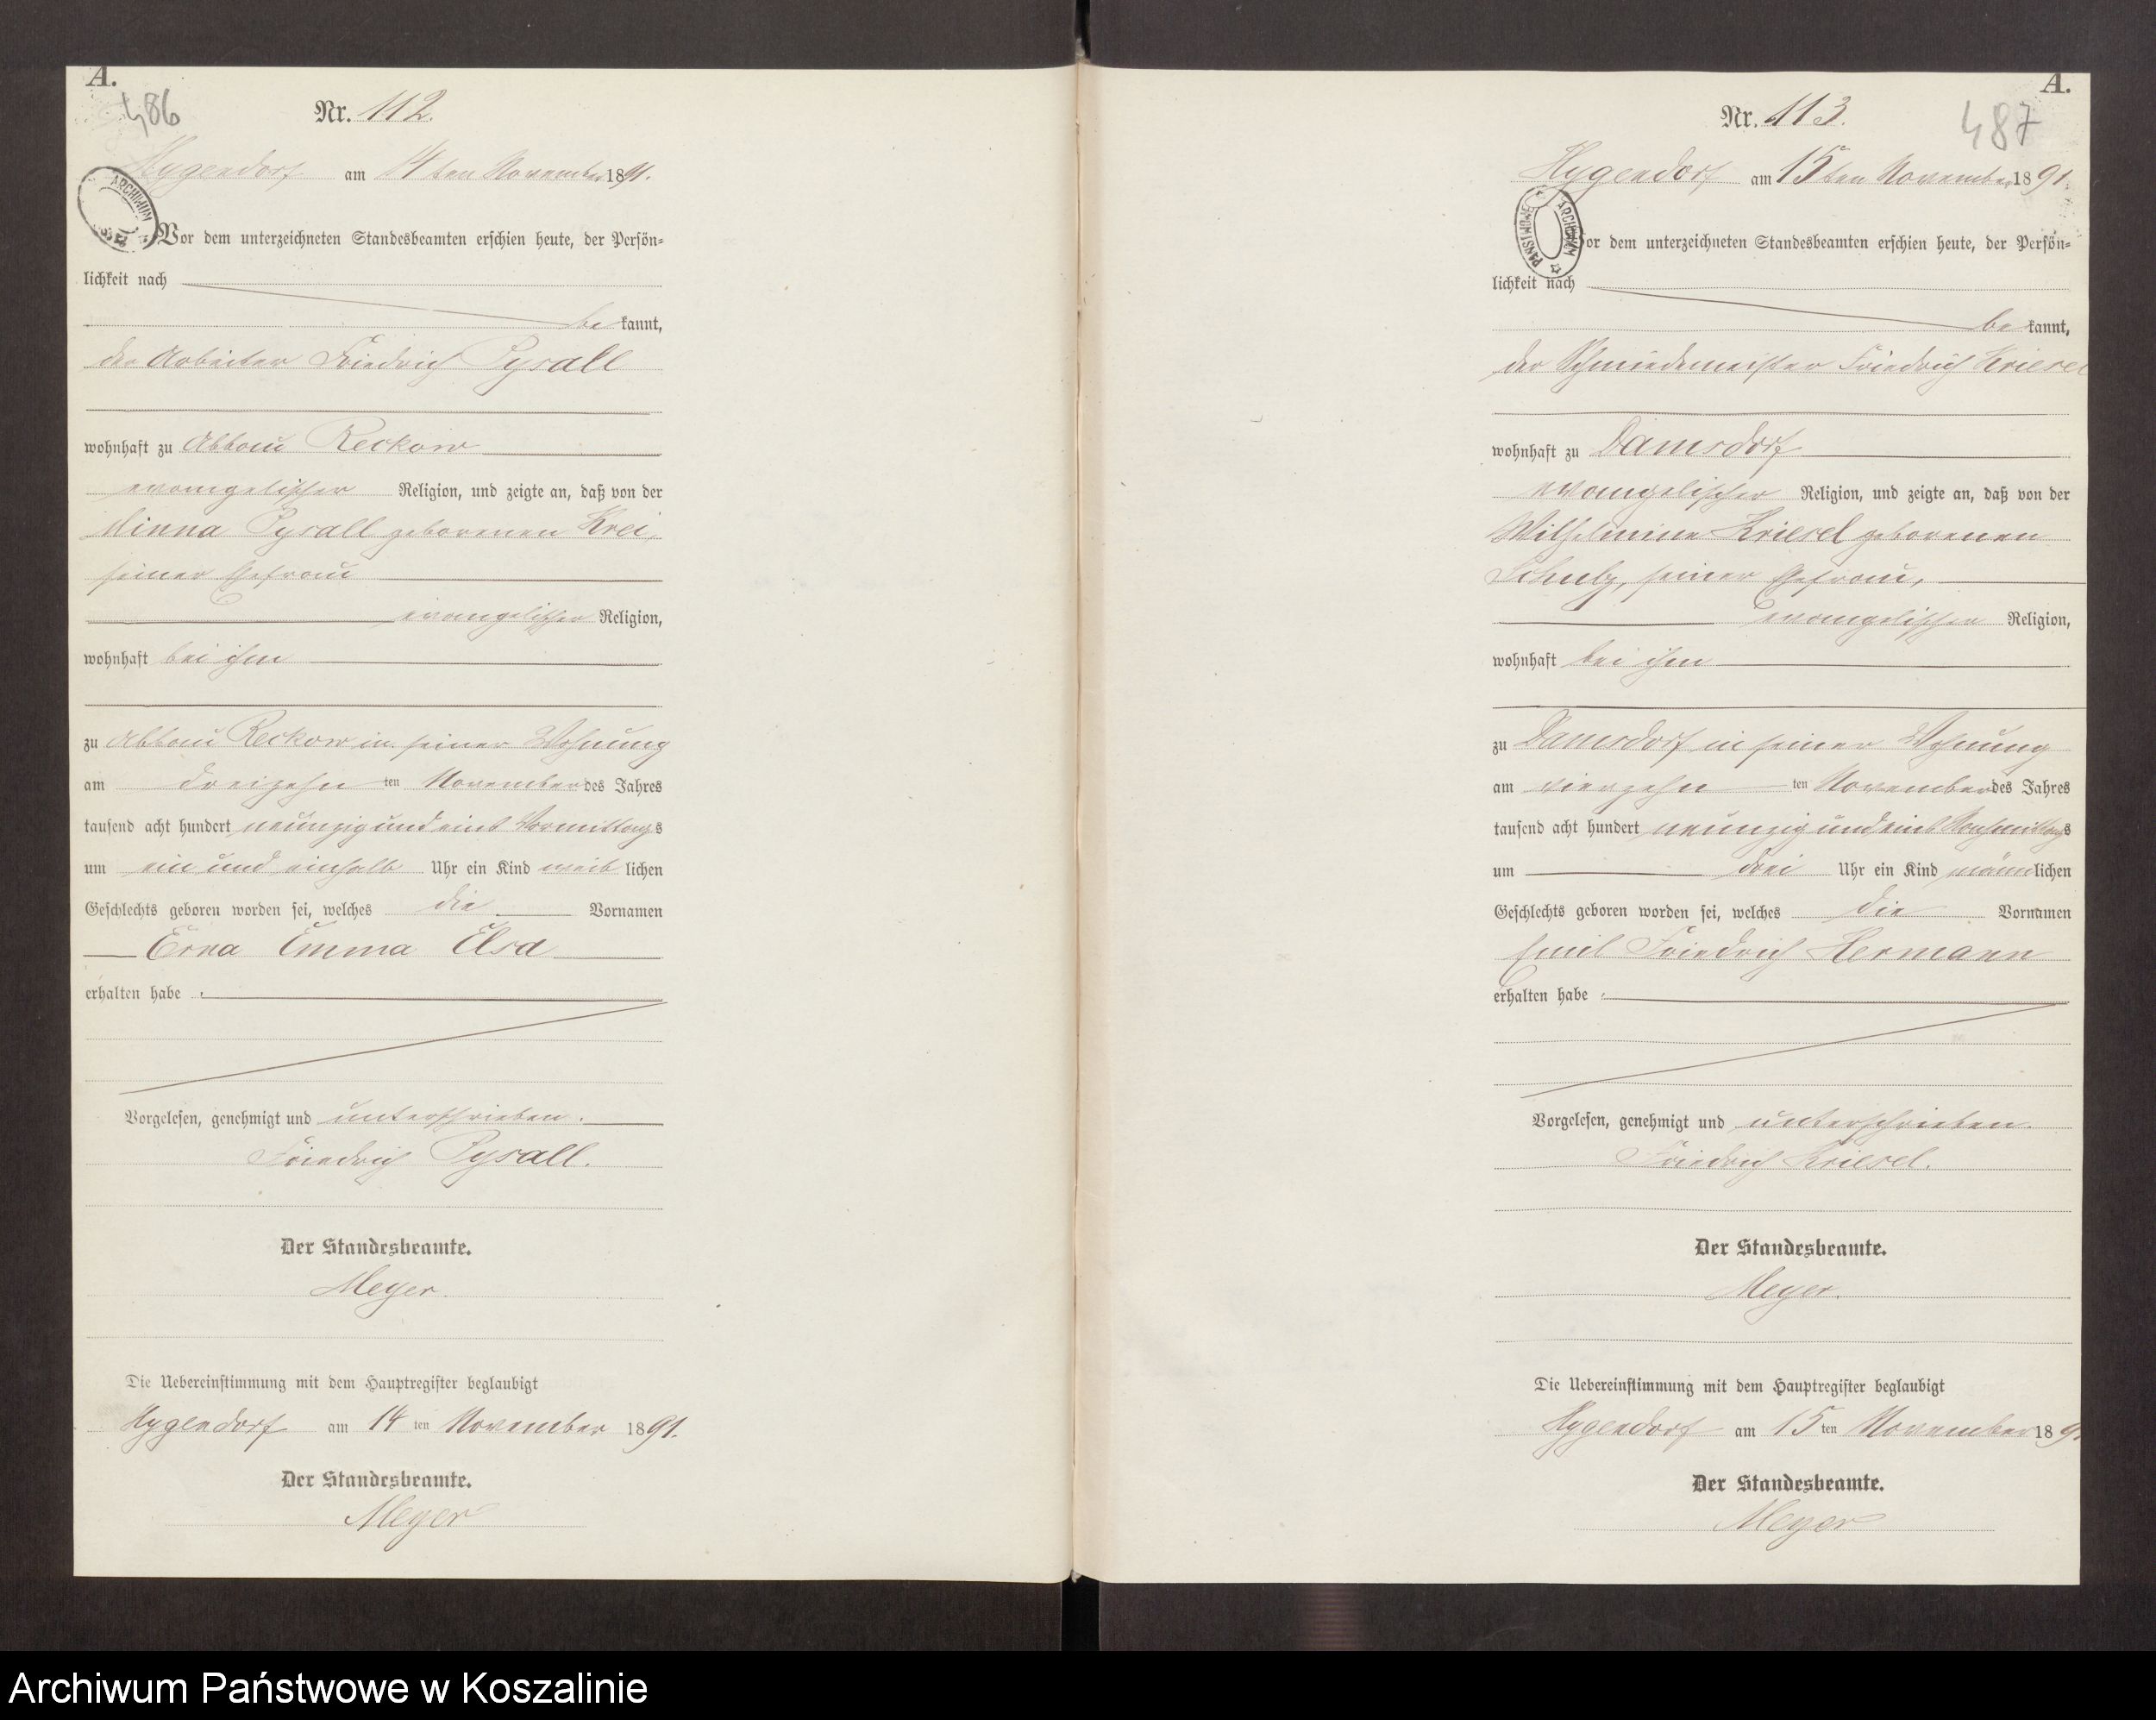 A.
486
Nr. 112.
Hygendorf am 14ten November 1891.
ARCHIWUM
Vor dem unterzeichneten Standesbeamten erschien heute, der Persön-
lichkeit nach
be kannt,
der Arbeiter Friedrich Pysall
wohnhaft zu Abbau Reckow
evangelischer Religion, und zeigte an, daß von der
Minna Pysall geborenen Krei,
seiner Ehefrau
evangelischer Religion,
wohnhaft bei ihm
zu Abbau Reckow in seiner Wohnung
am dreizehn ten November des Jahres
tausend acht hundert neunzig und eins Vormittags
um ein und einhalb Uhr ein Kind weib lichen
Geschlechts geboren worden sei, welches die Vornamen
Erna Emma Elsa
erhalten habe.
Vorgelesen, genehmigt und unterschrieben.
Friedrich Pysall.
Der Standesbeamte.
Meyer.
Die Uebereinstimmung mit dem Hauptregister beglaubigt
Hygendorf am 14 ten November 1891.
Der Standesbeamte.
Meyer
A.
487
Nr. 113.
Hygendorf am 15ten November 1891.
ARCHIWUM PAŃSTWOWE
Vor dem unterzeichneten Standesbeamten erschien heute, der Persön-
lichkeit nach
be kannt,
der Schmiedemeister Friedrich Kriesel
wohnhaft zu Damsdorf
evangelischer Religion, und zeigte an, daß von der
Wilhelmine Kriesel geborenen
Schulz, seiner Ehefrau,
evangelischer Religion,
wohnhaft bei ihm
zu Damsdorf in seiner Wohnung
am vierzehn ten November des Jahres
tausend acht hundert neunzig und eins Nachmittags
um drei Uhr ein Kind männlichen
Geschlechts geboren worden sei, welches die Vornamen
Emil Friedrich Hermann
erhalten habe.
Vorgelesen, genehmigt und unterschrieben.
Friedrich Kriesel.
Der Standesbeamte.
Meyer.
Die Uebereinstimmung mit dem Hauptregister beglaubigt
Hygendorf am 15 ten November 1891
Der Standesbeamte.
Meyer
Archiwum Państwowe w Koszalinie